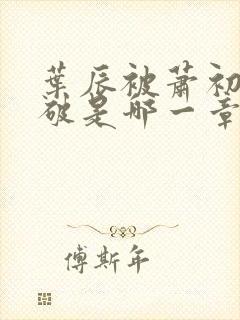 葉辰被蕭初
破是哪一章
傅斯年